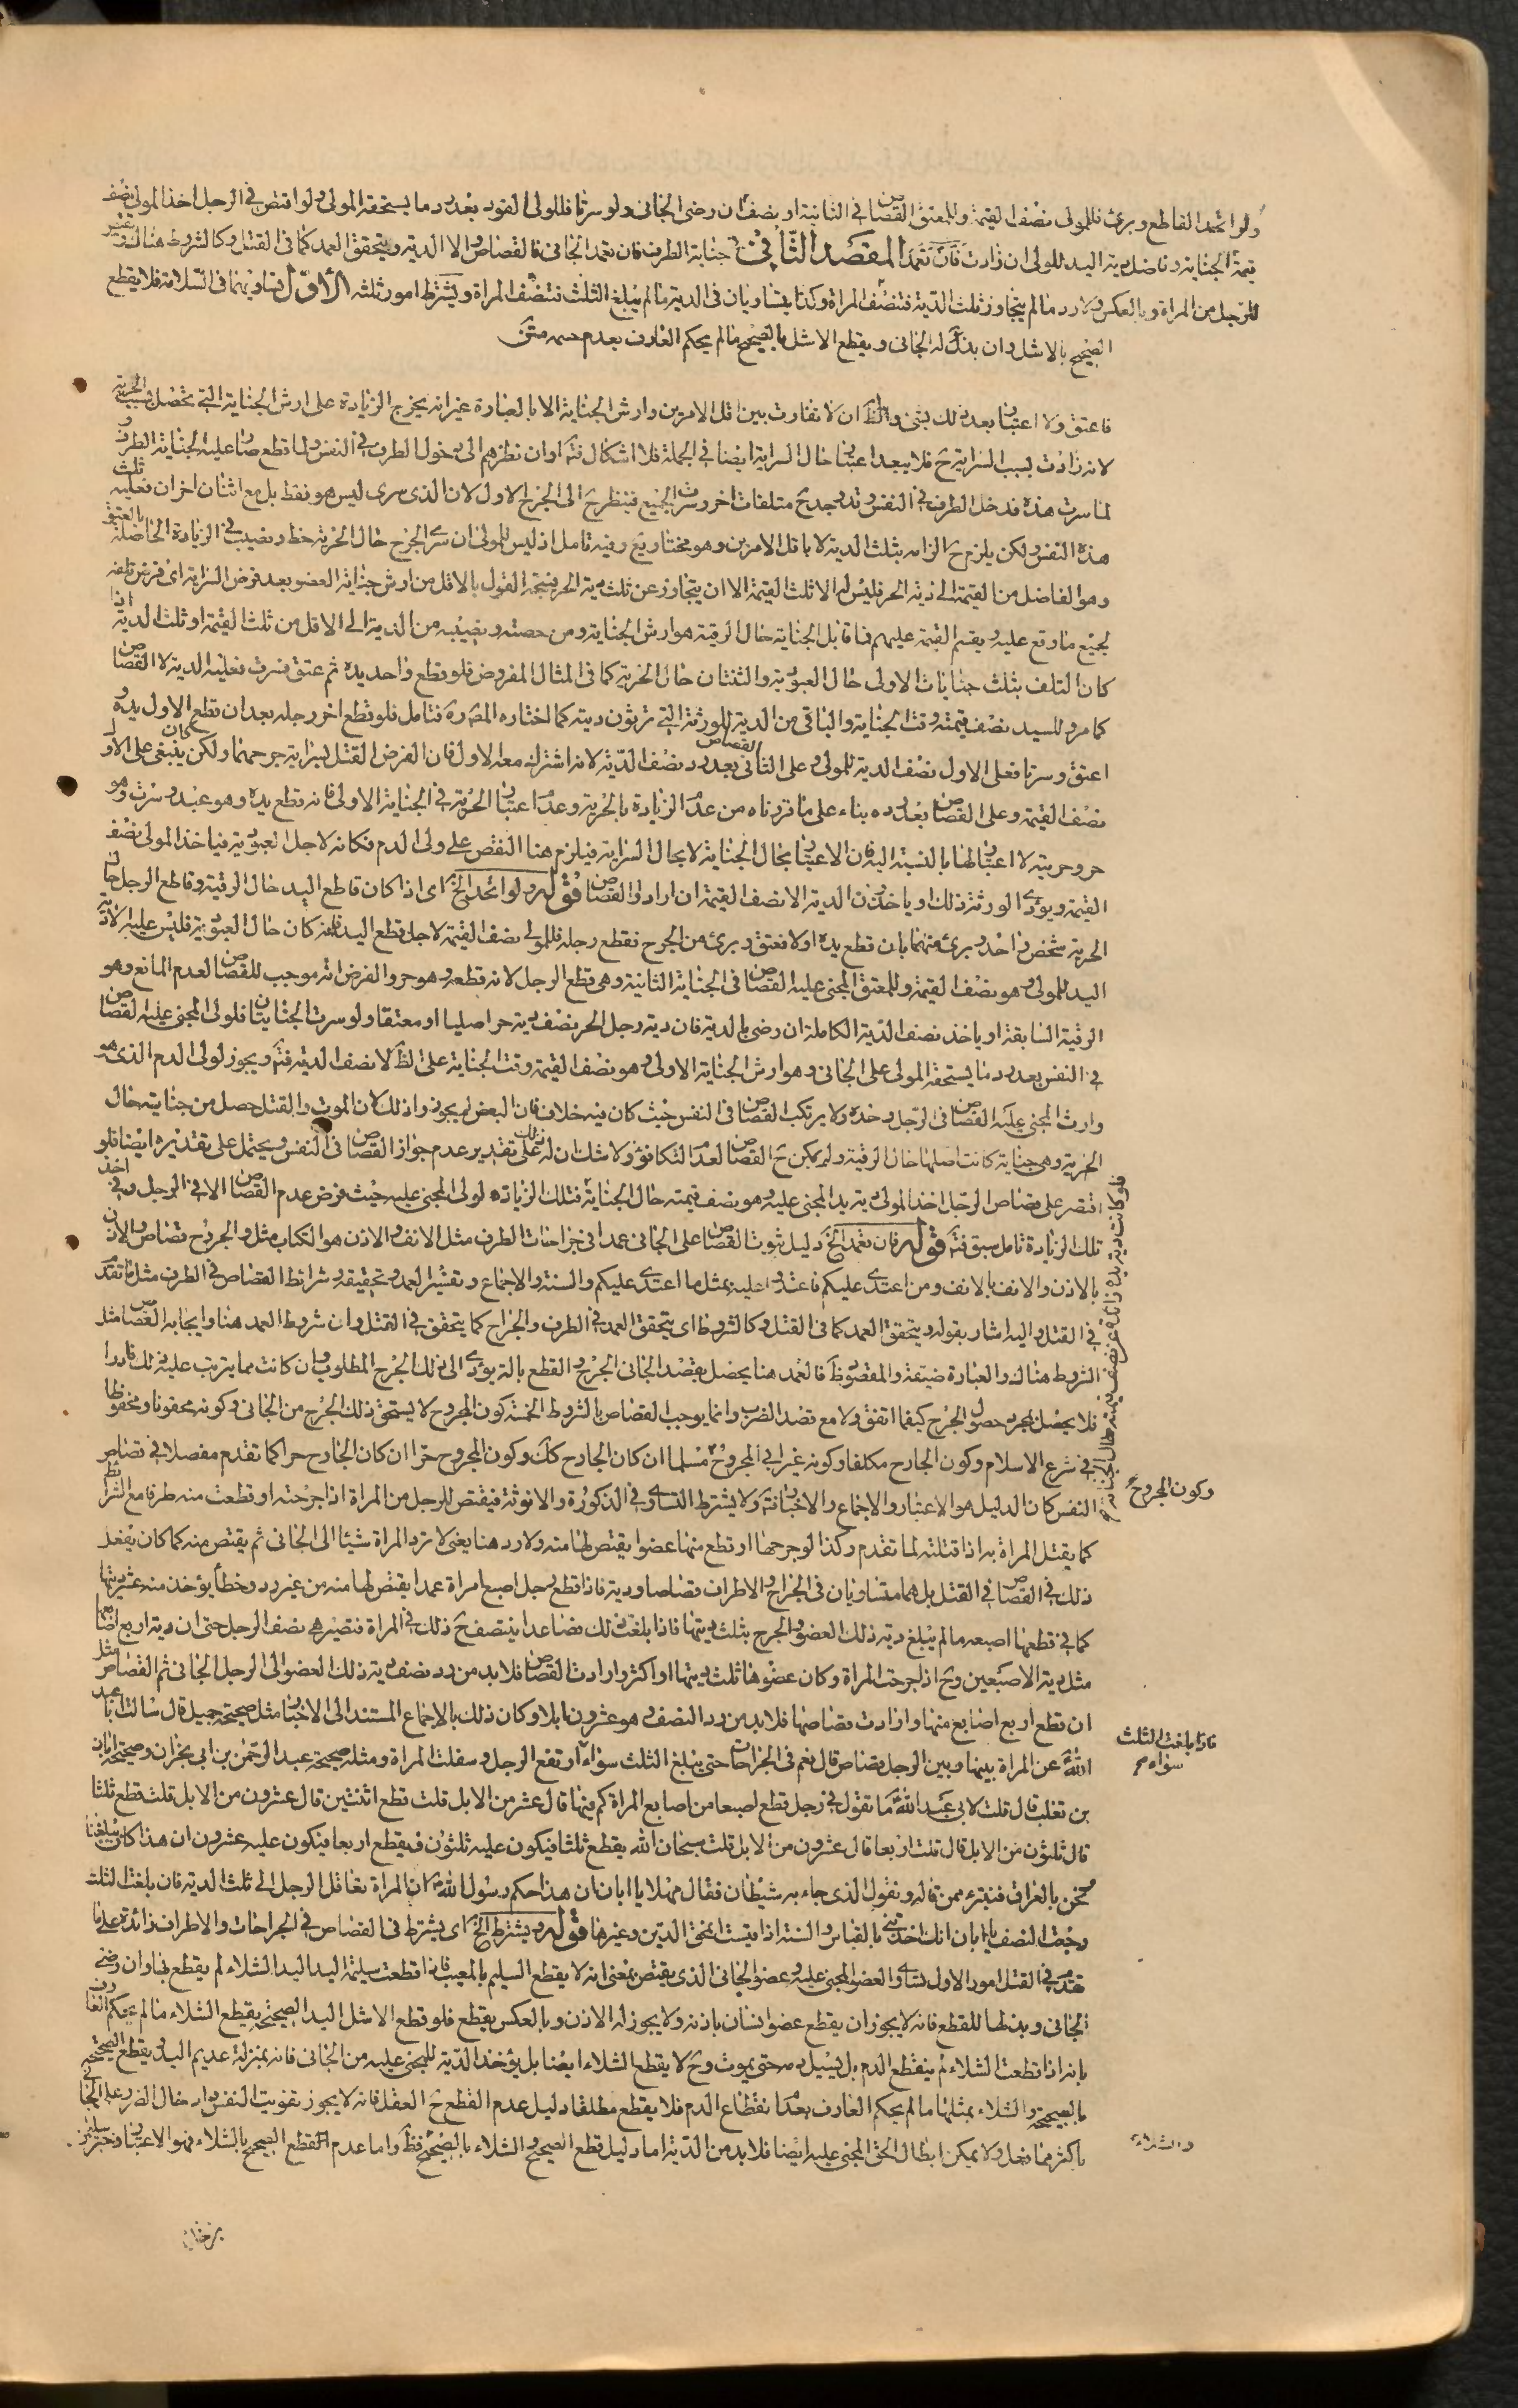 ولو اتحد القاطع وبرئ فللمولى نصف القيمة وللمعتق القصاص في الثانية او نصف ان رضى الجاني ولو سرتا فللولى القود بعد رد ما يستحقه المولى ولو اقتص في الرجل اخذ المولى نصف
قيمة الجناية وفاضل دية اليد للولى ان زادت المقصد الثاني في جناية الطرف فان تعمد الجاني فالقصاص والا الدية ويتحقق العمد كما في القتل وكالشروط هناك فيقتص
للرجل من المراة وبالعكس ولا رد ما لم يتجاوز ثلث الدية فتنصف المراة وكذا يتساويان في الدية ما لم يبلغ الثلث فتنصف المراة ويشترط امور ثلثه الأول تساويهما في السلامة فلا يقطع
الصحيح بالاشل وان بذله الجاني ويقطع الاشل بالصحيح ما لم يحكم العارف بعدم حسمه متن
فاعتق ولا اعتبار بعد ذلك بشئ والظ ان لا تفاوت بين اقل الامرين وارش الجناية الا بالعبارة غير انه يخرج الزيادة على ارش الجناية التي تحصل بسبب الحرية
لانه زادت بسبب السراية ح فلا يبعد اعتبار حال السراية ايضا في الجملة فلا اشكال فتم او ان نظرهم الى دخول الطرف في النفس ولما قطع صار عليه الجناية الطرف و
لما سرت هذه فدخل الطرف في النفس وقد وجد ح متلفات اخر وسرت الجميع فينظر ح الى الجرح الاول لان الذى سرى ليس هو فقط بل مع اثنان اخران فعليه ثلث
هذه النفس ولكن يلزم ح الزامه بثلث الدية لا باقل الامرين وهو مختار يع وفيه تامل اذ ليس للمولى ان سرى الجرح حال الحرية حظ ونصيب في الزيادة الحاصلة بالعتق
وهو الفاضل من القيمة الى دية الحر فليس له الا ثلث القيمة الا ان يتجاوز عن ثلث دية الحر فيتجه القول بالاقل من ارش جناية العضو بعد فرض السراية اى فرض تلفه
لجميع ما وقع عليه ويقسم القيمة عليهم فما قابل الجناية حال الرقية هو ارش الجناية ومن حصته ونصيبه من الدية الى الاقل من ثلث القيمة او ثلث الدية اذا
كان التلف بثلث جنايات الاولى حال العبودية والثنتان حال الحرية كما في المثال المفروض فلو قطع واحد يده ثم عتق فسرت فعليه الدية لا القصاص
كما مر وللسيد نصف قيمته وقت الجناية والباقي من الدية للورثة التي يرثون ديته كما اختاره المص ره فتامل فلو قطع اخر رجله بعد ان قطع الاول يده و
اعتق وسرتا فعلى الاول نصف الدية للمولى وعلى الثاني القصاص بعد رد نصف الدية لانه اشترك معه الاول فان الفرض القتل بسراية جرحهما ولكن ينبغي كان على الاول
نصف القيمة وعلى القصاص بعد رده بناء على ما قررناه من عدم الزيادة بالحرية وعدم اعتبار الحرية في الجناية الاولى فانه قطع يده وهو عبد وسرت وهو
حر وحريته لا اعتبار لها بالنسبة اليه فان الاعتبار بحال الجناية لا بحال السراية فيلزم هنا النقص على ولى الدم فكانه لاجل العبودية فياخذ المولى نصف
القيمة ويؤدى الورثة ذلك او ياخذون الدية الا نصف القيمة ان ارادوا القصاص قوله ولو اتحد الخ اى اذا كان قاطع اليد حال الرقية وقاطع الرجل حال
الحرية شخص واحد وبرئ منهما بان قطع يده اولا فعتق وبرئ من الجرح فقطع رجله فللمولى نصف القيمة لاجل قطع اليد فانه كان حال العبودية فليس عليه الا دية
اليد للمولى وهو نصف القيمة وللمعتق المجنى عليه القصاص في الجناية الثانية وهى قطع الرجل لانه قطعه وهو حر والفرض انه موجب للقصاص لعدم المانع وهو
الرقية السابقة او ياخذ نصف الدية الكاملة ان رضى بالدية فان دية رجل الحر نصف دية حر اصليا او معتقا ولو سرت الجنايتان فلولى المجنى عليه القصاص
في النفس بعد رد ما يستحقه المولى على الجاني وهو ارش الجناية الاولى وهو نصف القيمة وقت الجناية على الظ لا نصف الدية فتم ويجوز لولى الدم الذى هو
وارث المجنى عليه القصاص في الرجل وحده ولا يرتكب القصاص في النفس حيث كان فيه خلاف فان البعض لم يجوز واذلك لان الموت والقتل حصل من جناية حال
الحرية وهى جناية كانت اصلها حال الرقية ولم يمكن ح القصاص لعدم التكافؤ ولا شك ان له ذلك على تقدير عدم جواز القصاص في النفس ويحتمل على تقديره ايضا فلو
اقتصر على قصاص الرجل اخذ المولى دية يد المجنى عليه وهو نصف قيمته حال الجناية فتلك الزيادة لولى المجنى عليه حيث فرض عدم القصاص الا في الرجل وفي اخذ
تلك الزيادة تامل سبق فتم قوله فان تعمد الخ دليل ثبوت القصاص على الجاني عمدا في جراحات الطرف مثل الانف والاذن هو الكتاب مثل والجروح قصاص والاذن
بالاذن والانف بالانف ومن اعتدى عليكم فاعتدوا عليه بمثل ما اعتدى عليكم والسنة والاجماع وتفسير العمد وتحقيقه وشرائط القصاص في الطرف مثل ما تقدم
في القتل واليه اشار بقوله ويتحقق العمد كما في القتل وكالشروط اى يتحقق العمد في الطرف والجراح كما يتحقق في القتل وان شروط العمد هنا وايجابه القصاص مثل
الشروط هناك والعبارة ضيقة والمقص وظ فالعمد هنا يحصل بقصد الجاني الجرح والقطع بالة يؤدى الى ذلك الجرح المطلوب وان كانت مما يترتب عليه ذلك نادرا
فلا يحصل بمجرد حصول الجرح كيفما اتفق ولا مع قصد الضرب وانما يوجب القصاص بالشروط الخمسة كون المجروح لا يستحق ذلك الجرح من الجاني وكونه محقونا ومحفوظا
في شرع الاسلام وكون الجارح مكلفا وكونه غير ابى المجروح مسلما ان كان الجارح كك وكون المجروح حرا ان كان الجارح حرا كما تقدم مفصلا في قصاص
النفس كان الدليل هو الاعتبار والاجماع والاخبار فتم ولا يشترط التساوى في الذكورة والانوثة فيقتص للرجل من المراة اذا جرحته او قطعت منه طرفا مع الشرائط
كما يقتل المراة به اذا قتلته لما تقدم وكذا لو جرحها او قطع منها عضوا يقتص لها منه ولا رد هنا يعنى لا ترد المراة شيئا الى الجاني ثم يقتص منه كما كان يفعل
ذلك في القصاص في القتل بل هما متساويان في الجراح والاطراف قصاصا ودية فاذا قطع رجل اصبع امراة عمدا يقتص لها منه من غير رد وخطأ يؤخذ منه عشر ديتها
كما في قطعها اصبعه ما لم يبلغ دية ذلك العضو والجرح بثلث ديتها فاذا بلغت ذلك فصاعدا ينتصف ح ذلك في المراة فتصير هى نصف الرجل حتى ان دية اربع اصابعها
مثل دية الاصبعين وح اذا جرحت المراة وكان عضوها ثلث ديتها او اكثر وارادت القصاص فلا بد من رد نصف دية ذلك العضو الى الرجل الجاني ثم القصاص مثل
ان قطع اربع اصابع منها وارادت قصاصها فلا بد من رد النصف وهو عشرون ابلا وكان ذلك بالاجماع المستند الى الاخبار مثل صحيحة جميل قال سالت ابا عبد
الله ع عن المراة بينها وبين الرجل قصاص قال نعم في الجراحات حتى يبلغ الثلث سواء ارتفع الرجل وسفلت المراة ومثله صحيحة عبد الرحمن بن ابى نجران وصحيحة ابان
بن تغلب قال قلت لابى عبد الله ع ما تقول في رجل قطع اصبعا من اصابع المراة كم فيها قال عشر من الابل قلت قطع اثنتين قال عشرون من الابل قلت قطع ثلثا
قال ثلثون من الابل قال قلت اربعا قال عشرون من الابل قلت سبحان الله يقطع ثلثا فيكون عليه ثلثون فيقطع اربعا فيكون عليه عشرون ان هذا كان يبلغنا
نحن بالعراق فنتبرء ممن قاله ونقول الذى جاء به شيطان فقال مهلا يا ابان ان هذا حكم رسول الله ص ان المراة تعاقل الرجل الى ثلث الدية فان بلغت الثلث
رجعت النصف يا ابان انك اخذتنى بالقياس والسنة اذا قيست انمحق الدين وغيرها قوله ويشترط الخ اى يشترط في القصاص في الجراحات والاطراف زائدة على ما
تقدم في القتل امور الاول تساوى العضو المجنى عليه وعضو الجاني الذى يقتص بمعنى انه لا يقطع السليم بالمعيب فاذا قطعت سليمة اليد اليد الشلاء لم يقطع بها وان رضى
الجاني وبذلها للقطع فانه لا يجوز ان يقطع عضو انسان باذنه ولا يجوز له الاذن وبالعكس يقطع فلو قطع الاشل اليد الصحيحة يقطع الشلاء ما لم يحكم العارف
بانه اذا قطعت الشلاء لم ينقطع الدم بل يسيل دمه حتى يموت وح لا يقطع الشلاء ايضا بل يؤخذ الدية للمجنى عليه من الجاني فانه بمنزلة عديم اليد ويقطع الصحيحة
بالصحيحة والشلاء بمثلها ما لم يحكم العارف بعدم انقطاع الدم فلا يقطع مطلقا دليل عدم القطع ح العقل فانه لا يجوز تفويت النفس وادخال الضرر على الجاني
باكثر مما دخل ولا يمكن ابطال الحق المجنى عليه ايضا فلا بد من الدية اما دليل قطع الصحيح والشلاء بالصحيح فظ واما عدم القطع الصحيح بالشلاء فهو الاعتبار وخبر سليمن
فلو كانت دية يده زائدة عن نصف قيمته حال الجناية
وكون المجروح
فاذا بلغت الثلث سواء
والشلاء
بن خالد